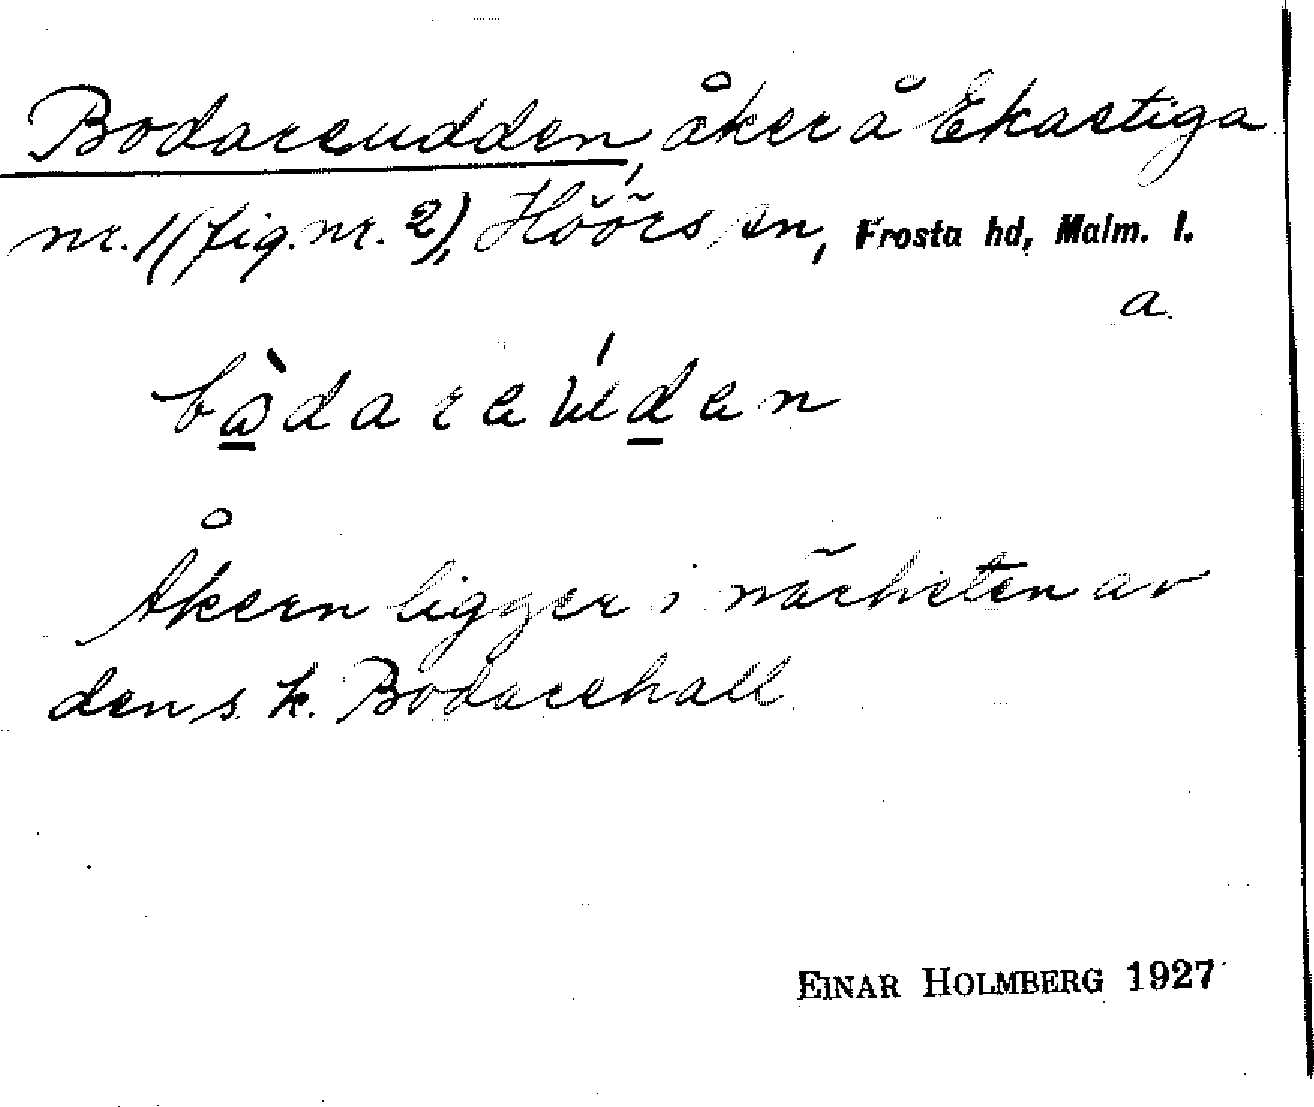 Bodareudden, åker å Ekastiga
nr. 1 (fig. nr. 2), Höörs sn, Frosta hd, Malm. l.
a.
Åkern ligger i närheten av
den s. k. Bodarehall
EINAR HOLMBERG 1927